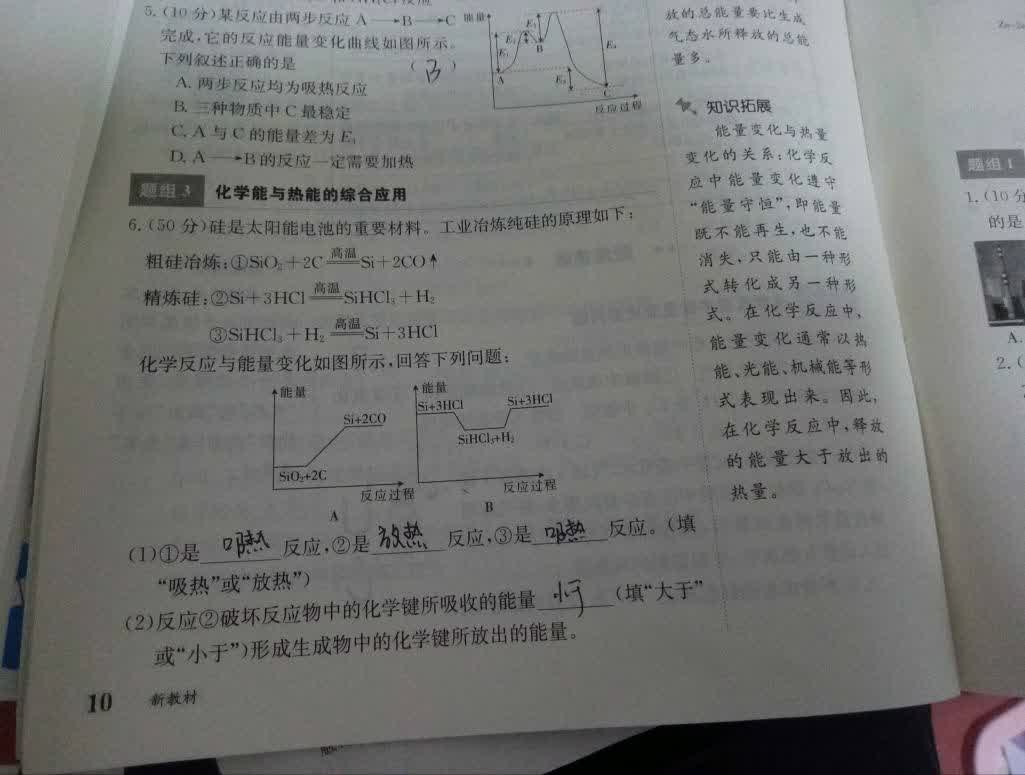 5.(10分)某反应由两步反应 A→B→C
完成,它的反应能量变化曲线如图所示。
下列叙述正确的是 (B)
A. 两步反应均为吸热反应
B. 三种物质中 C 最稳定
C. A 与 C 的能量差为 E₄
D. A→B 的反应一定需要加热
能量
E₂
E₁
B
E₃
A
C
反应过程
题组 3 化学能与热能的综合应用
6.(50分)硅是太阳能电池的重要材料。工业冶炼纯硅的原理如下:
粗硅冶炼:①SiO₂+2C 高温 Si+2CO↑
精炼硅:②Si+3HCl 高温 SiHCl₃+H₂
③SiHCl₃+H₂ 高温 Si+3HCl
化学反应与能量变化如图所示,回答下列问题:
能量
Si+2CO
SiO₂+2C
反应过程
A
能量
Si+3HCl
Si+3HCl
SiHCl₃+H₂
反应过程
B
(1)①是 吸热 反应,②是 放热 反应,③是 吸热 反应。(填
“吸热”或“放热”)
(2)反应②破坏反应物中的化学键所吸收的能量 小于 (填“大于”
或“小于”)形成生成物中的化学键所放出的能量。
10 新教材
放的总能量要比生成
气态水所释放的总能
量多。
知识拓展
能量变化与热量
变化的关系:化学反
应中能量变化遵守
“能量守恒”,即能量
既不能再生,也不能
消失,只能由一种形
式转化成另一种形
式。在化学反应中,
能量变化通常以热
能、光能、机械能等形
式表现出来。因此,
在化学反应中,释放
的能量大于放出的
热量。
题组 1
1.(10分
的是
A.
2.(